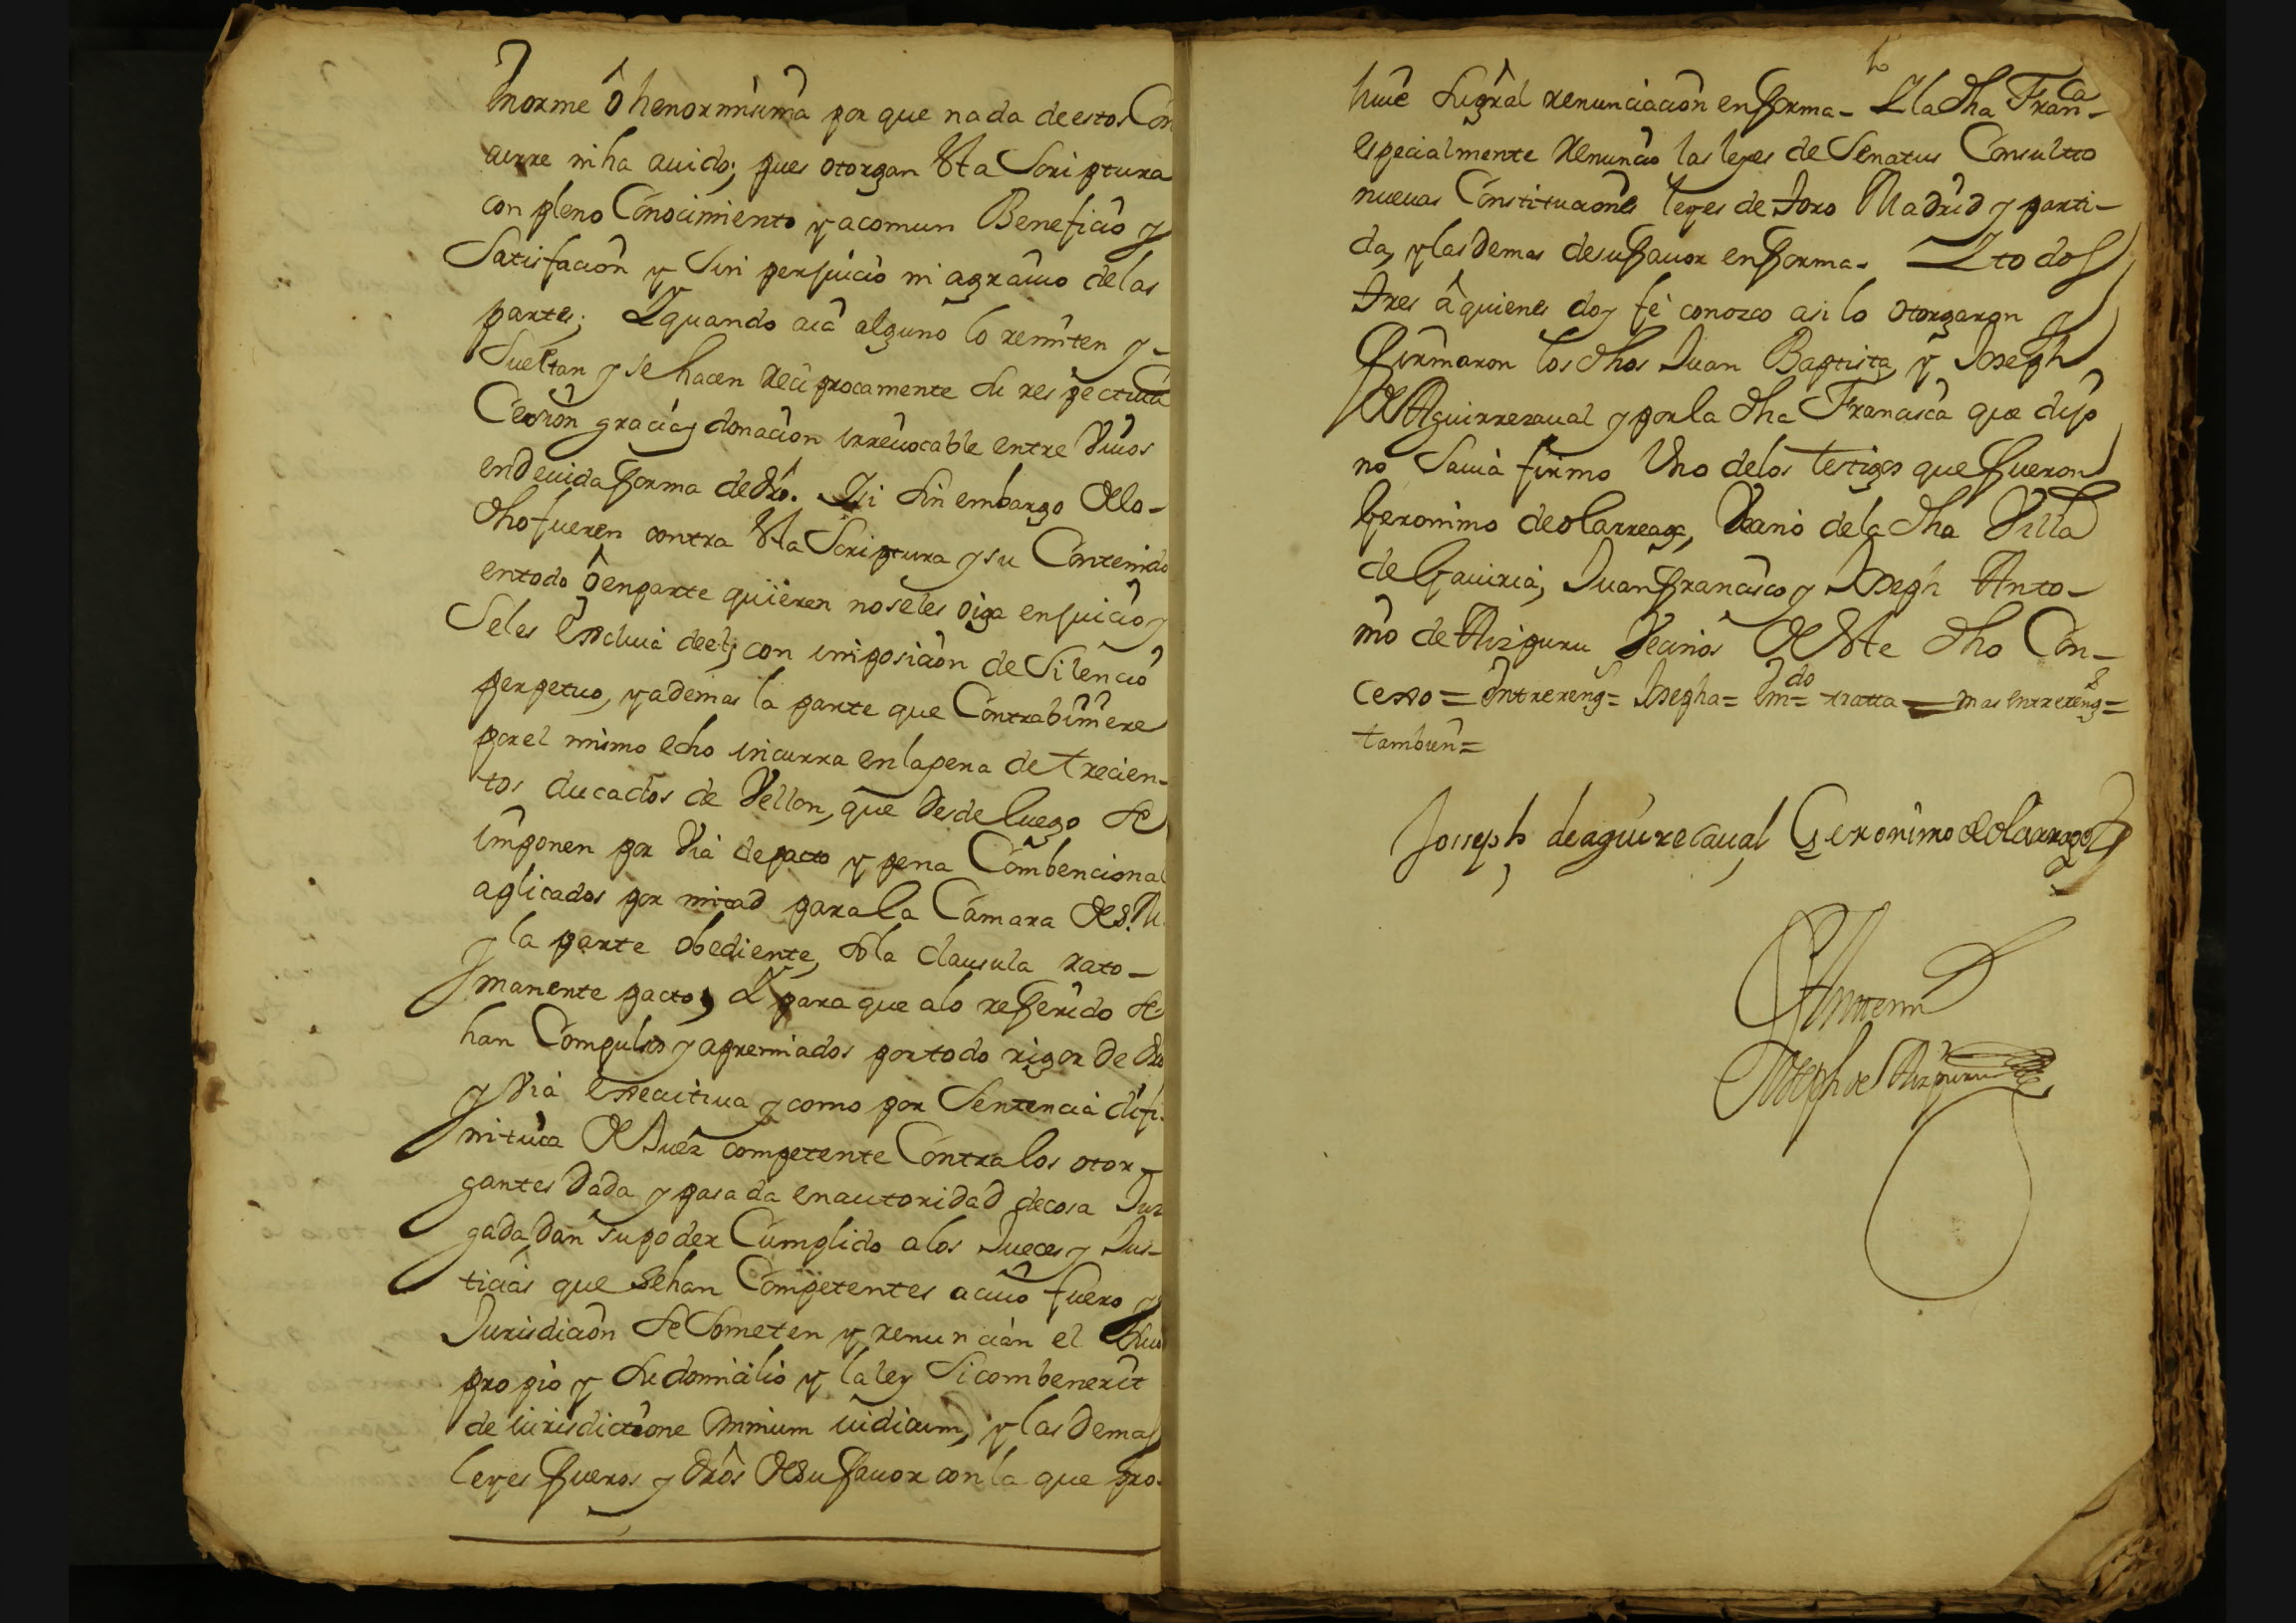 Ynorme ô henormisima por que nada de estos Con
curre ni ha auido; pues otorgan esta Scriptura
con pleno Conocimiento y acomun Beneficio y
Satisfacion y sin perjuicio ni agrauio de las
partes; Y quando aia alguno lo remiten y
Sueltan y se hacen Reciprocamente su respectiua
Cession gracia y donacion irreuocable entre Viuos
en deuida forma de dro. Y si sin embargo de lo
dho fueren contra esta Scriptura y su Contenido
entodo ô enparte quieren noseles oiga en juicio y
Seles Excluia de el; con imposicion de Silencio
perpetuo, y ademas la parte que Contrabiniere
por el mismo echo incurra en la pena de trecien-
tos ducados de Vellon, que desde luego se
imponen por Via de pacto y pena Combencional
aplicados por mitad para la Camara de S. M.
y la parte obediente, so la clausula rato
manente pacto; Y para que alo referido se
han Compulsos y apremiados portodo rigor de dro
y Via Executiua y como por Sentencia difi-
nitiua de Juez competente Contra los otor-
gantes dada y pasada en autoridad de cosa Juz
gada, dan su poder Cumplido a los Jueces y Jus-
ticias que sehan Competentes acuio fuero y
Jurisdicion se Someten y renuncian el suio
propio y su domicilio y la ley Si combenerit
de iurisdictione omnium iudicum, y las demas
leyes fueros y dros de su fauor con la que pro-
hiue su gral renunciacion en forma- Y la dha Fran.ca
especialmente Renuncio las leyes de Senatus Consulto
nueuas Constituciones leyes de toro Madrid y parti-
da, y las demas de su fauor en forma. Y todos
tres â quienes doy fê conozco asi lo otorgaron y
firmaron los dhos Juan Baptista, y Joseph
de Aguirrezaual y por la dha Francisca que dijo
no Sauia firmo Uno de los testigos que fueron
Geronimo de olarreaga, Vecino de la dha Villa
de Gauiria, Juan francisco y Joseph Anto-
nio de Aizpuru Vecinos de este dho Con-
cexo = Entrereng.s = Josepha = Em.do = tratta = mas entrereng.s =
tambien =
Josseph de aguirre caual Geronimo de olarraga
Ante mi
Joseph de Aizpuru